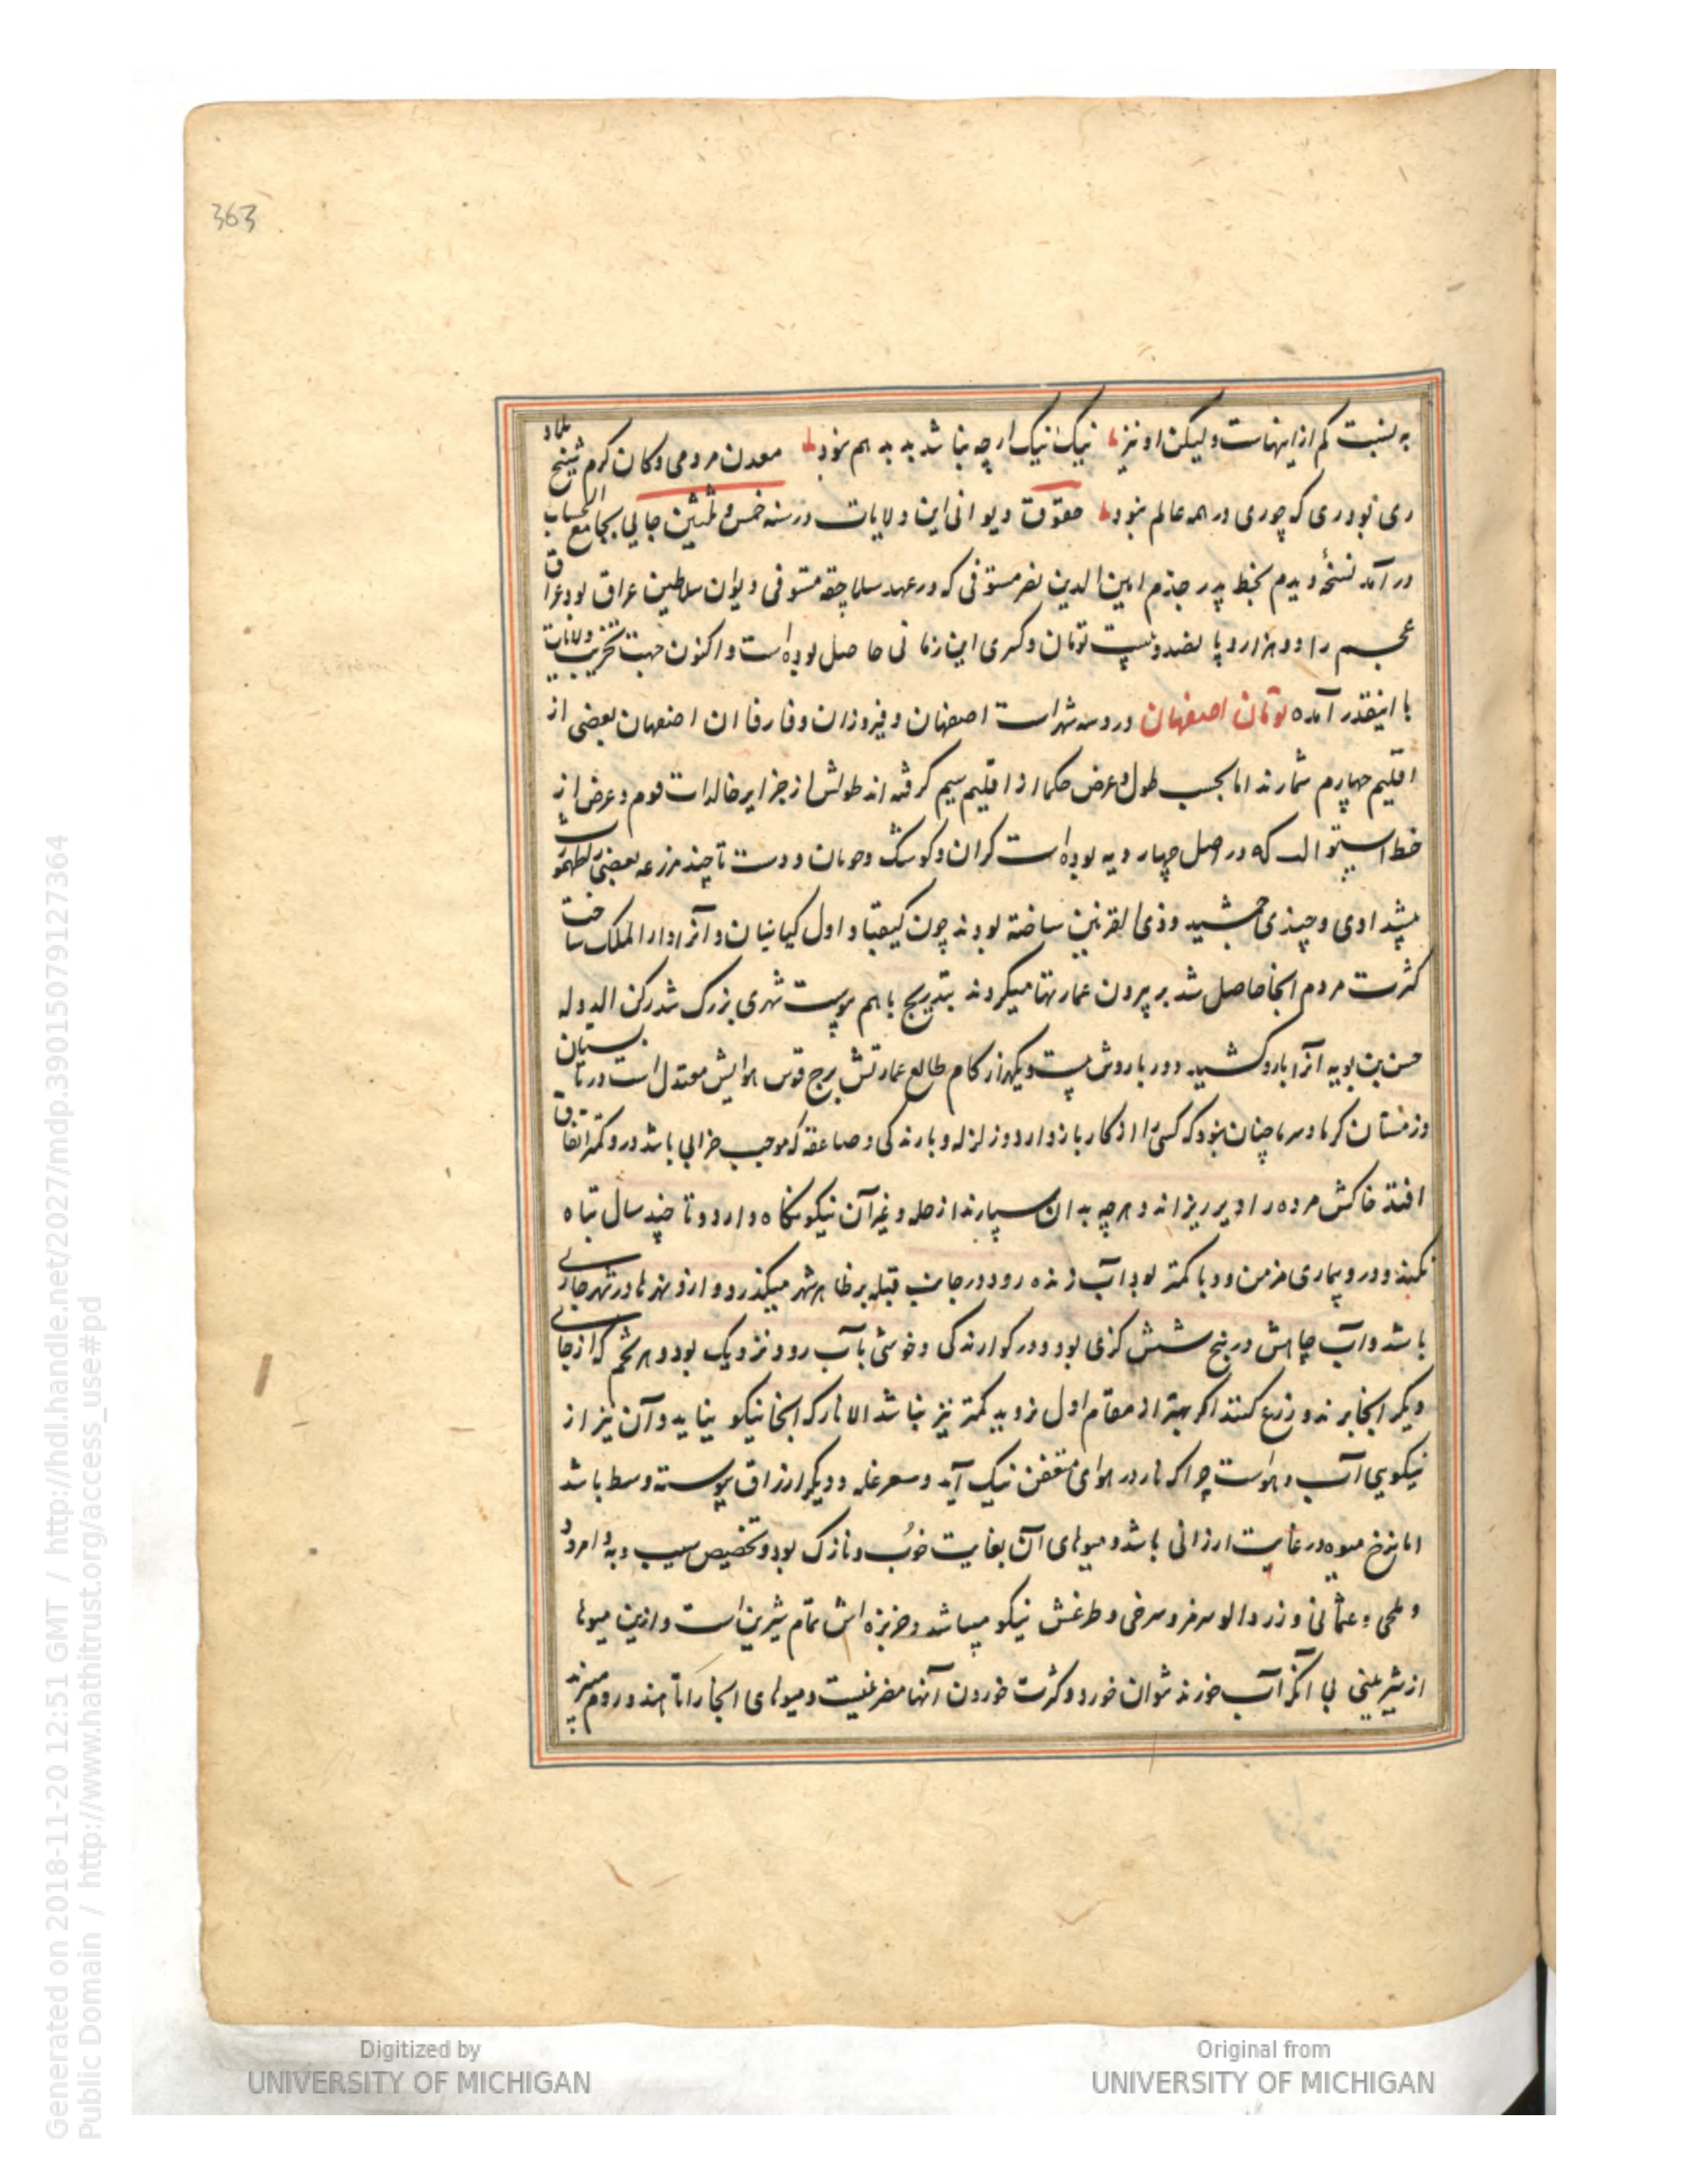 363
به نسبت کم از اینهاست ولیکن او نیز نیک نیک ارچه نباشد بد بد هم نبود معدن مردمی و کان کرم شیخ بلاد
ری بود ری که چو ری در همه عالم نبود حقوق دیوانی این ولایات در سنه خمس و ثلثین خانی بجامع الحساب
در آمد نسخهٔ دیدم بخط پدر جدم امین الدین نصر مستوفی که در عهد سلاجقه مستوفی دیوان سلاطین عراق بود عراق
عجم را دو هزار و پانصد و بیست تومان و کسری این زمانی حاصل بوده است و اکنون جهت تخریب ولایات
با اینقدر آمده تومان اصفهان درو سه شهر است اصفهان و فیروزان و فارفاان اصفهان بعضی از
اقلیم چهارم شمارند اما بحسب طول و عرض حکما از اقلیم سیم گرفته اند طولش از جزایر خالدات فوم و عرض از
خط استوا لب که در اصل چهار دیه بوده است کران و کوشک و جوبان و دردشت تا چند مزرعه بعضی طهمورث
پیشدادی و چندی جمشید و ذی القرنین ساخته بودند چون کیقباد اول کیانیان و آنرا دارالملک ساخت
کثرت مردم انجا حاصل شد بر بیرون عمارتها میکردند بتدریج باهم پیوست شهری بزرک شد رکن الدوله
حسن بن بویه آنرا بارو کشید دور باروش بیست و یکهزار کام طالع عمارتش برج قوس هوایش معتدل است در تابستان
و زمستان کرما و سرما چنان نبود که کسی را از کار باز دارد و زلزله و بارندکی و صاعقه که موجب خرابی باشد درو کمتر اتفاق
افتد خاکش مرده را دیر ریزاند و هرچه بدان سپارند از غله و غیر آن نیکو نکاه دارد و تا چند سال تباه
نکند و درو بیماری مزمن و وبا کمتر بود آب زنده رود در جانب قبله بر ظاهر شهر میکذرد و ازو نهرها در شهر جاری
باشد و آب چاهش در پنج شش کزی بود و در کوارندکی و خوشی بآب رود نزدیک بود و هر تخم که از جای
دیکر انجا برند و زرع کنند اکر بهتر از مقام اول نروید کمتر نیز نباشد الا نار که انجا نیکو نیاید و آن نیز از
نیکویی آب و هواست چرا که نار در هوای متعفن نیک آید و سعر غله و دیکر ارزاق پیوسته وسط باشد
اما نرخ میوه در غایت ارزانی باشد و میوهای آن بغایت خوب و نازک بود و تخصیص سیب و به و امرود
و ملجی و عثمانی و زردالو سرمز و سرخی و طرغش نیکو میباشد و خربزه اش تمام شیرین است و ازین میوها
از شیرینی بی آنکه آب خورند نتوان خورد و کثرت خوردن آنها مضر نیست و میوهای انجا را تا هند و روم میبرند
Generated on 2018-11-20 12:51 GMT / http://hdl.handle.net/2027/mdp.39015079127364
Public Domain / http://www.hathitrust.org/access_use#pd
Digitized by
UNIVERSITY OF MICHIGAN
Original from
UNIVERSITY OF MICHIGAN